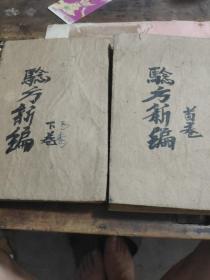 驗方新編
首卷
驗方新编
下卷